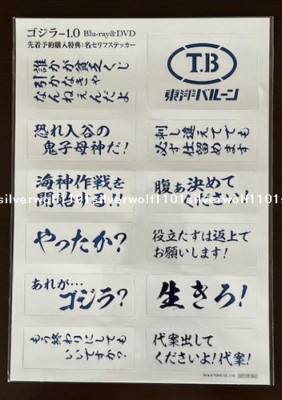 ゴジラ-1.0 Blu-ray&DVD
先着予約購入特典:名セリフステッカー
誰かが貧乏くじ
引かなきゃ
なんねぇんだよ
T.B
東洋バルーン
恐れ入谷の
鬼子母神だ!
刺し違えてでも
必ず仕留めます
海神作戦を
開始する!
腹ぁ決めて
ください!
silverwolf1101silverwolf1101silverwolf1101s
やったか?
役立たずは返上で
お願いします!
あれが…
ゴジラ?
生きろ!
もう終わりにしても
いいですか?
代案出して
くださいよ!代案!